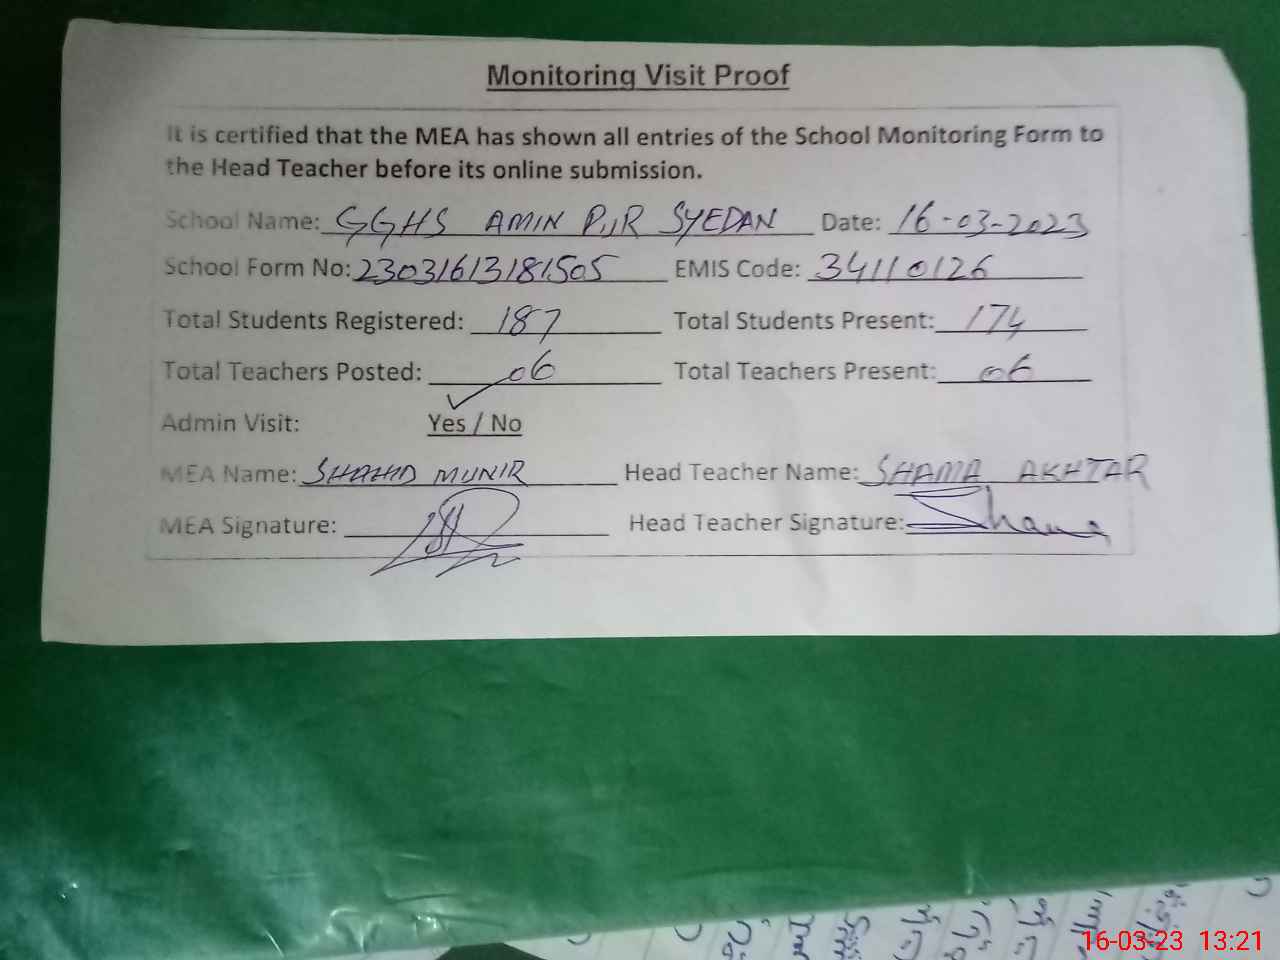 Monitoring Visit Proof
It is certified that the MEA has shown all entries of the School Monitoring Form to
the Head Teacher before its online submission.
School Name: GGHS AMIN PIR SYEDAN Date: 16-03-2023
School Form No: 23031613181505 EMIS Code: 34110126
Total Students Registered: 187 Total Students Present: 174
Total Teachers Posted: 06 Total Teachers Present: 06
Admin Visit: Yes / No
MEA Name: SHAHID MUNIR Head Teacher Name: SHAMA AKHTAR
MEA Signature: Head Teacher Signature: Shama
16-03-23 13:21